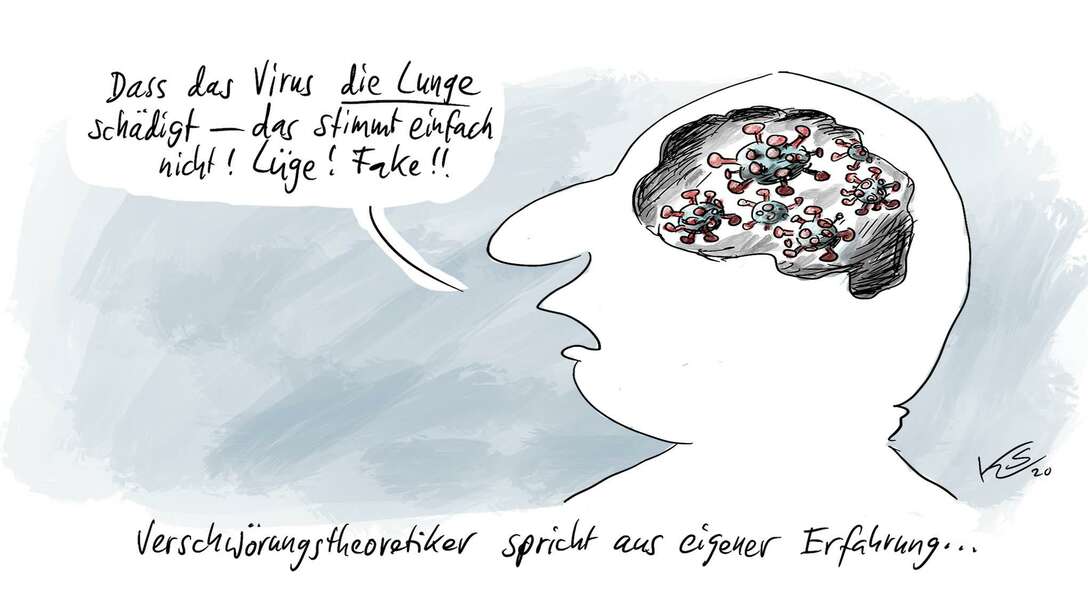 Dass das Virus die Lunge
schädigt – das stimmt einfach
nicht! Lüge! Fake!!
KS 20
Verschwörungstheoretiker spricht aus eigener Erfahrung...